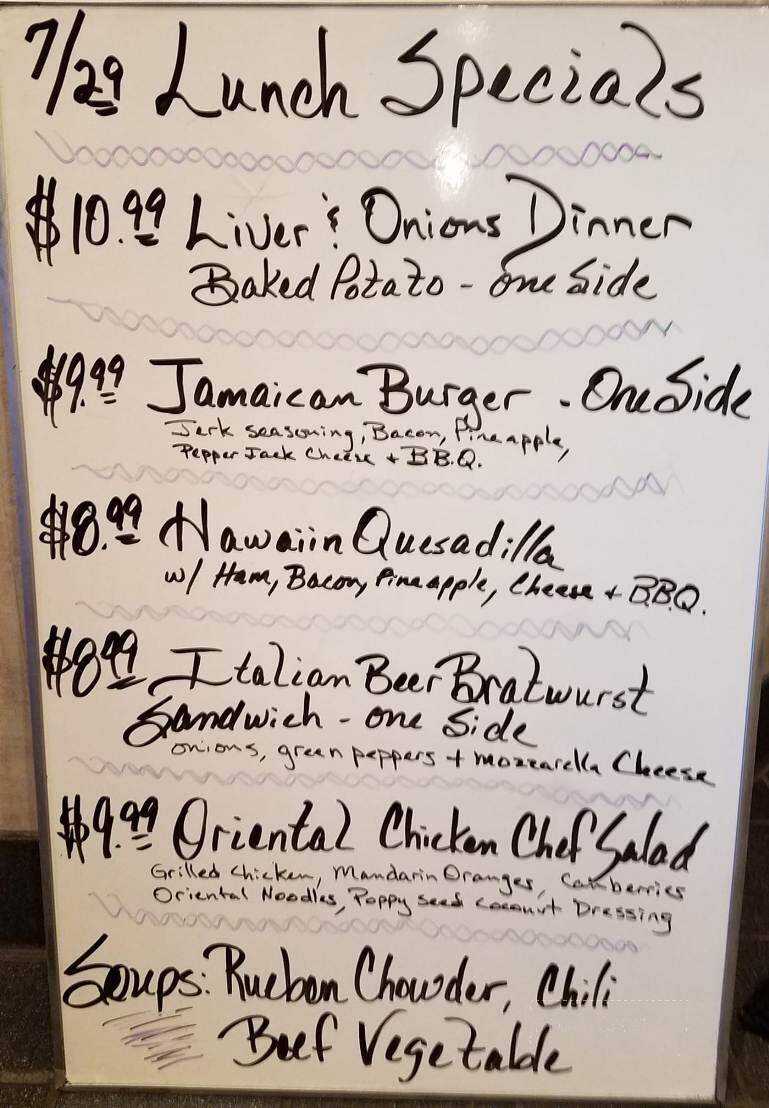 7/29 Lunch Specials
$10.99 Liver & Onions Dinner
Baked Potato - one Side
$9.99 Jamaican Burger - One Side
Jerk seasoning, Bacon, Pineapple,
Pepper Jack Cheese + B.B.Q.
$8.99 Hawaiin Quesadilla
w/ Ham, Bacon, Pineapple, Cheese + B.B.Q.
$8.99 Italian Beer Bratwurst
Sandwich - one Side
onions, green peppers + mozzarella Cheese
$9.99 Oriental Chicken Chef Salad
Grilled Chicken, Mandarin Oranges, Cranberries
Oriental Noodles, Poppy seed coconut Dressing
Soups: Rueben Chowder, Chili
Beef Vegetable